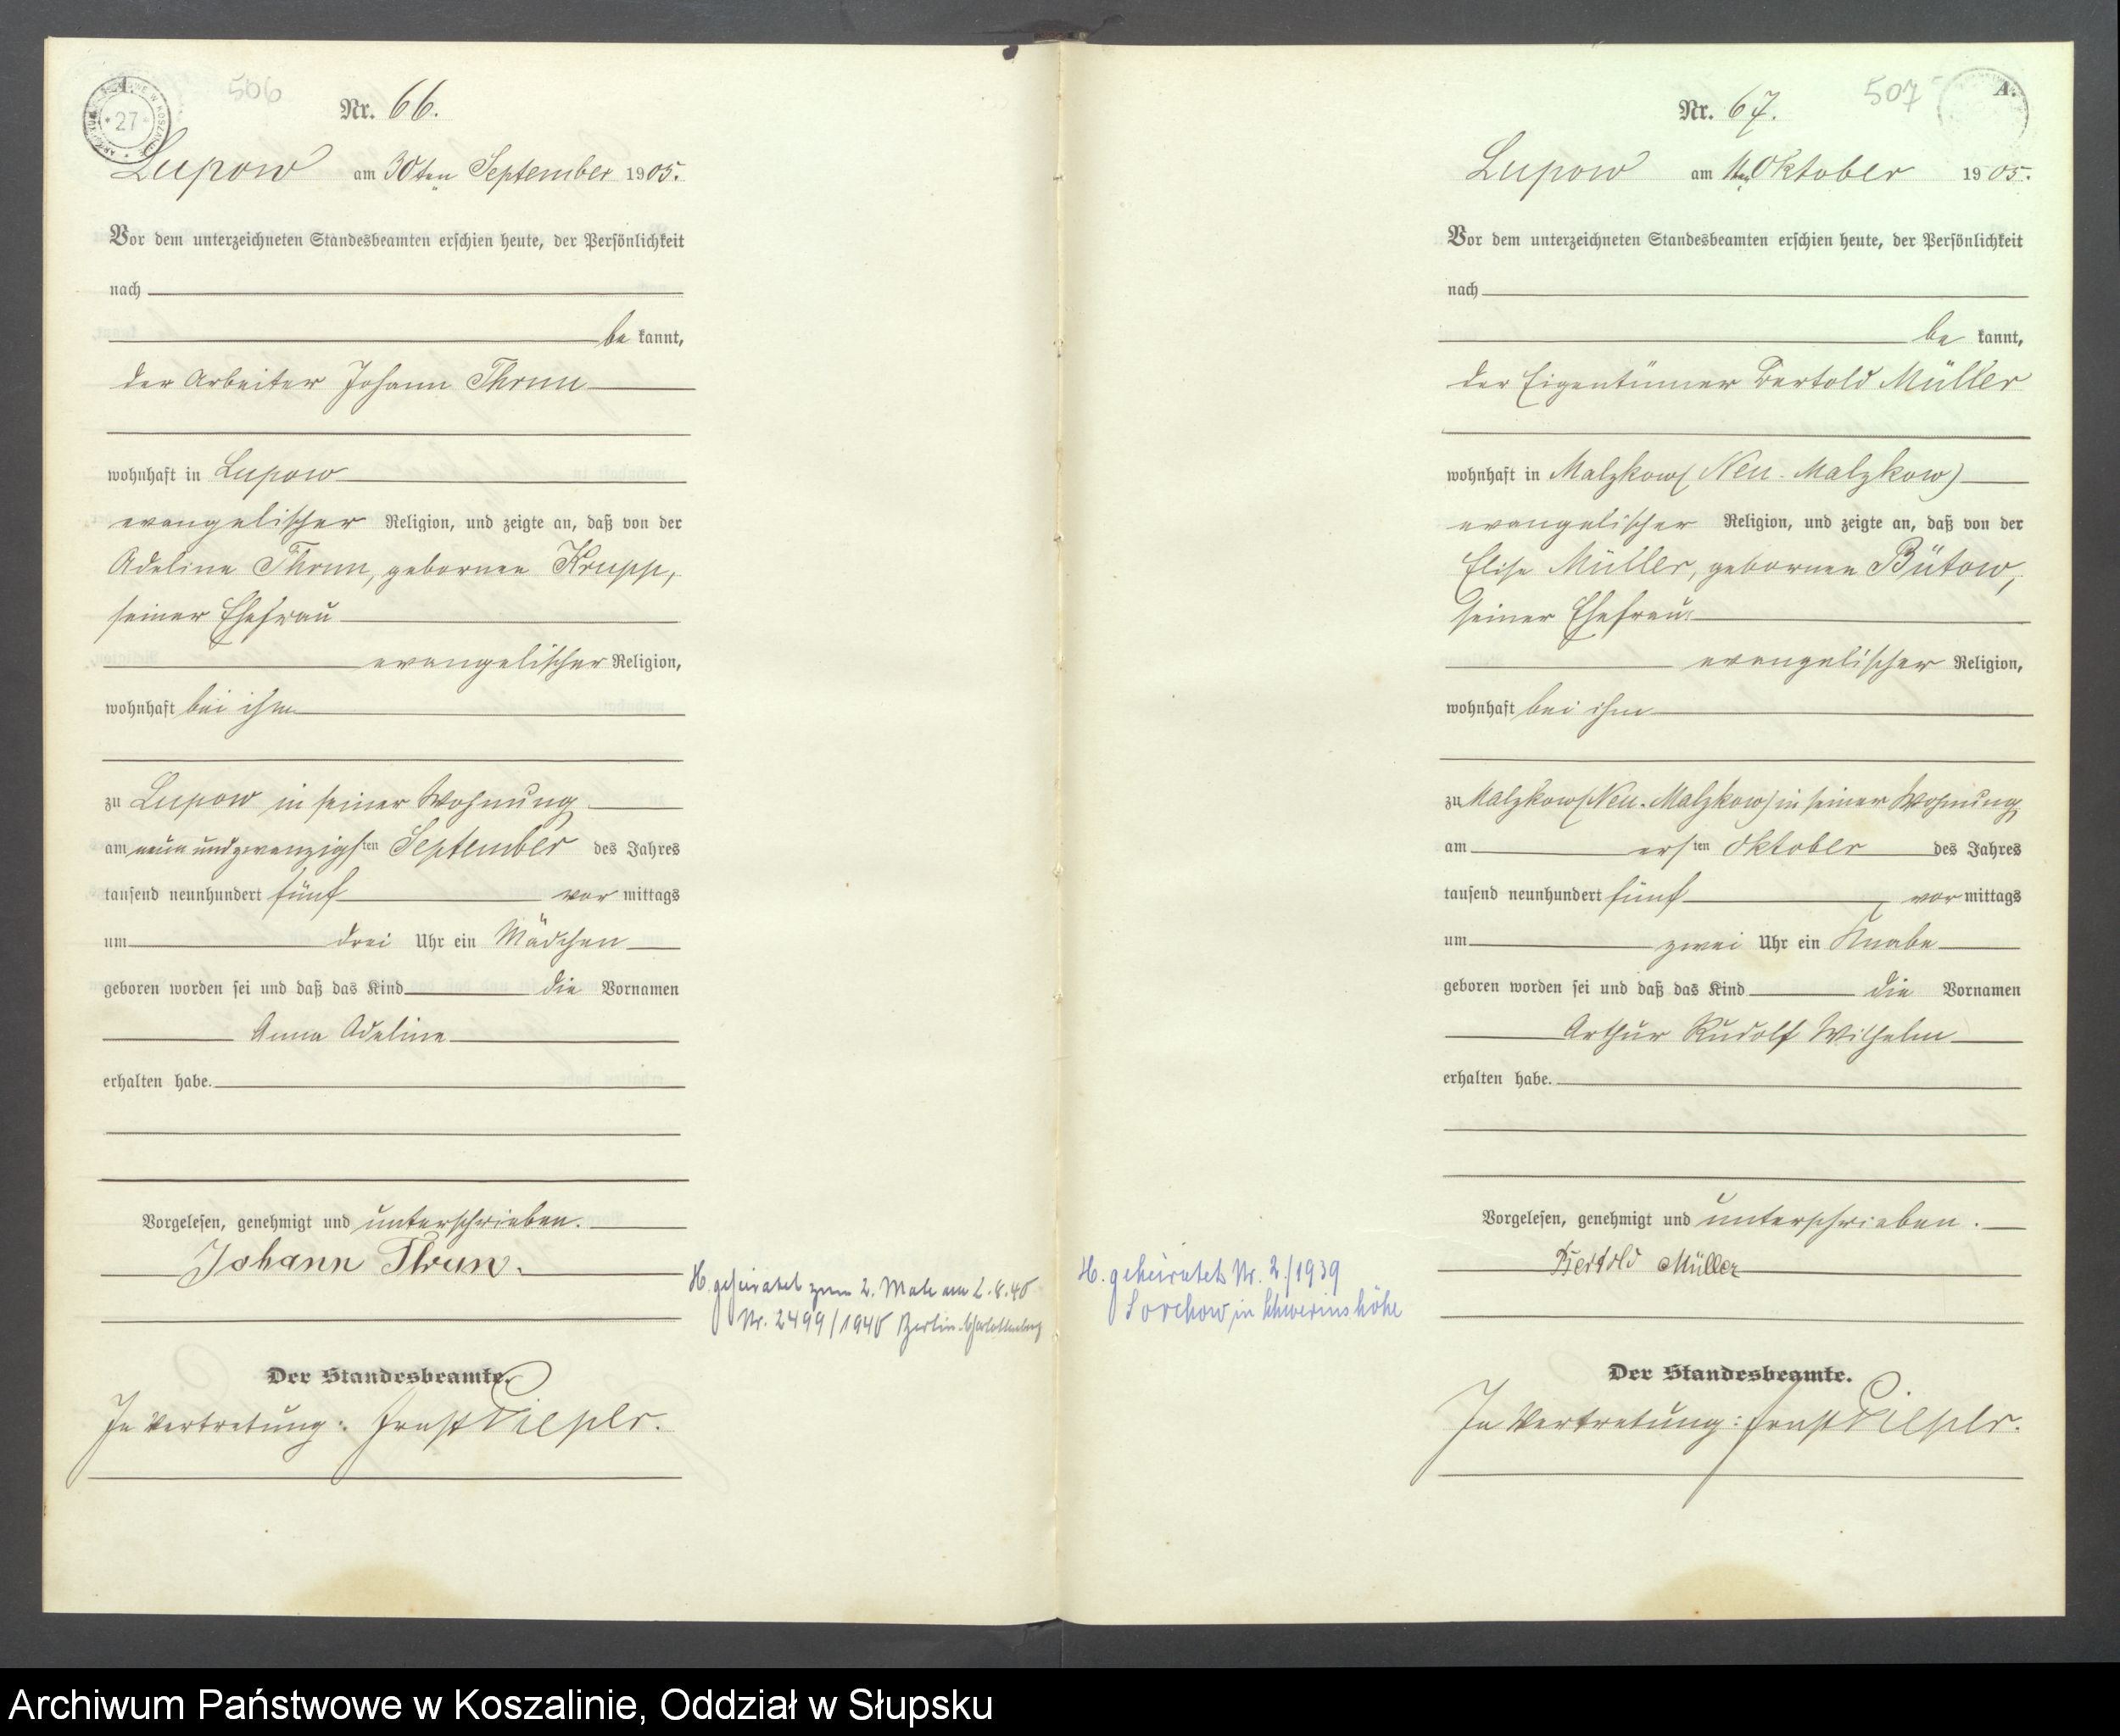 506
A.
27
Nr. 66.
Lupow am 30ten September 1905.
Vor dem unterzeichneten Standesbeamten erschien heute, der Persönlichkeit
nach
be kannt,
der Arbeiter Johann Thrun
wohnhaft in Lupow
evangelischer Religion, und zeigte an, daß von der
Adeline Thrun, geborenen Krupp,
seiner Ehefrau
evangelischer Religion,
wohnhaft bei ihm
zu Lupow in seiner Wohnung
am neunundzwanzigsten September des Jahres
tausend neunhundert fünf vor mittags
um drei Uhr ein Mädchen
geboren worden sei und daß das Kind die Vornamen
Anna Adeline
erhalten habe.
Vorgelesen, genehmigt und unterschrieben.
Johann Thrun.
H. geheiratet zum 2. Male am 2.8.40
Nr. 2499/1940 Berlin-Charlottenburg
Der Standesbeamte.
In Vertretung: Ernst
507
A.
Nr. 67.
Lupow am Oktober 1905.
Vor dem unterzeichneten Standesbeamten erschien heute, der Persönlichkeit
nach
be kannt,
der Eigentümer Bertold Müller
wohnhaft in Malzkow (Neu-Malzkow)
evangelischer Religion, und zeigte an, daß von der
Elise Müller, geborenen Bütow,
seiner Ehefrau
evangelischer Religion,
wohnhaft bei ihm
zu Malzkow (Neu-Malzkow) in seiner Wohnung
am ersten Oktober des Jahres
tausend neunhundert fünf vor mittags
um zwei Uhr ein Knabe
geboren worden sei und daß das Kind die Vornamen
Arthur Rudolf Wilhelm
erhalten habe.
Vorgelesen, genehmigt und unterschrieben.
Bertold Müller
H. geheiratet Nr. 2/1939
Sorchow in Schwerinshöhe
Der Standesbeamte.
In Vertretung: Ernst
Archiwum Państwowe w Koszalinie, Oddział w Słupsku